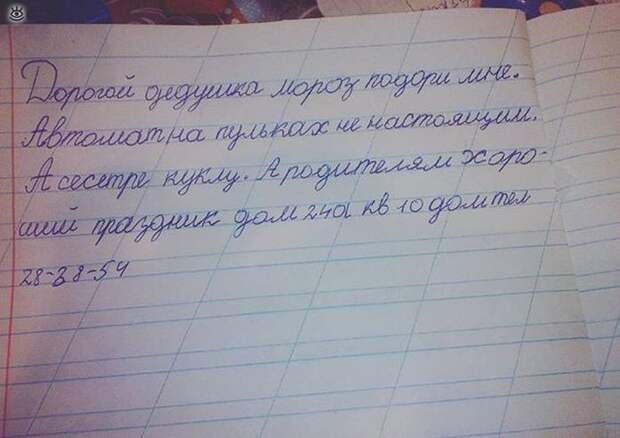 Дорогой дедушка мороз подари мне.
Автомат на пульках не настоящим.
А сестре куклу. А родителям харо-
ший праздник дом 24а кв 10 дом тел
28-38-54